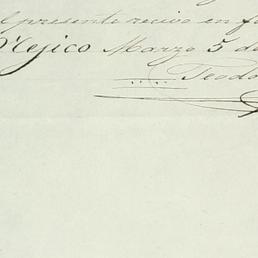 el presente recivo en fa
Mejico Marzo 5 de
Teodo